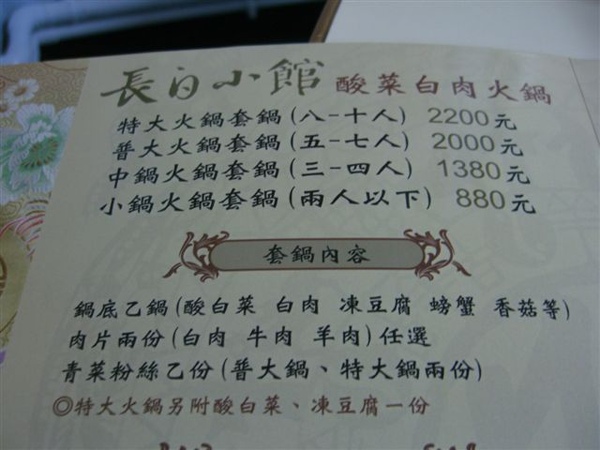 長白小館 酸菜白肉火鍋
特大火鍋套鍋(八-十人) 2200元
普大火鍋套鍋(五-七人) 2000元
中鍋火鍋套鍋(三-四人) 1380元
小鍋火鍋套鍋(兩人以下) 880元
套鍋內容
鍋底乙鍋(酸白菜 白肉 凍豆腐 螃蟹 香菇等)
肉片兩份(白肉 牛肉 羊肉)任選
青菜粉絲乙份(普大鍋、特大鍋兩份)
◎特大火鍋另附酸白菜、凍豆腐一份